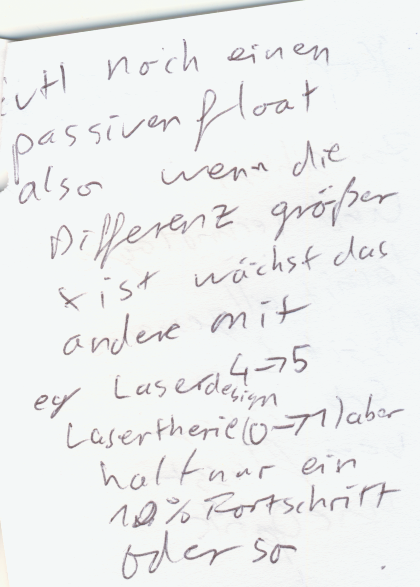 evtl noch einen
passiven float
also wenn die
Differenz größer
x ist wächst das
andere mit
eg Laserdesign 4→5
Lasertherie (0→1) aber
halt nur ein
10% Fortschritt
oder so